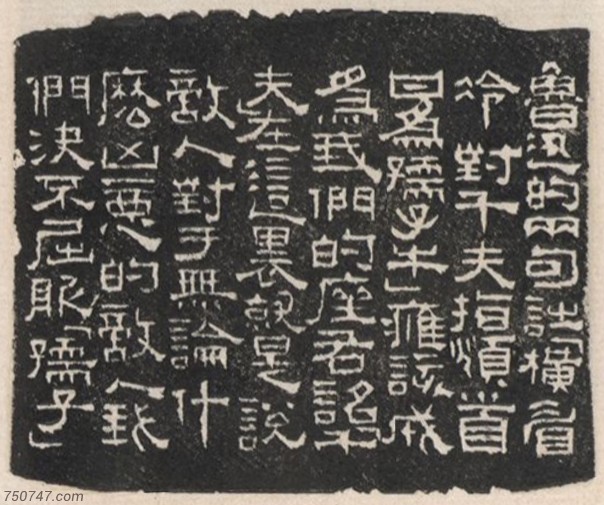 魯迅的兩句詩橫眉
冷對千夫指頫首
甘爲孺子牛」應該成
爲我們的座右銘千
夫在這裏就是說
敵人對于無論什
麽凶惡的敵人我
們決不屈服「孺子」
750747.com